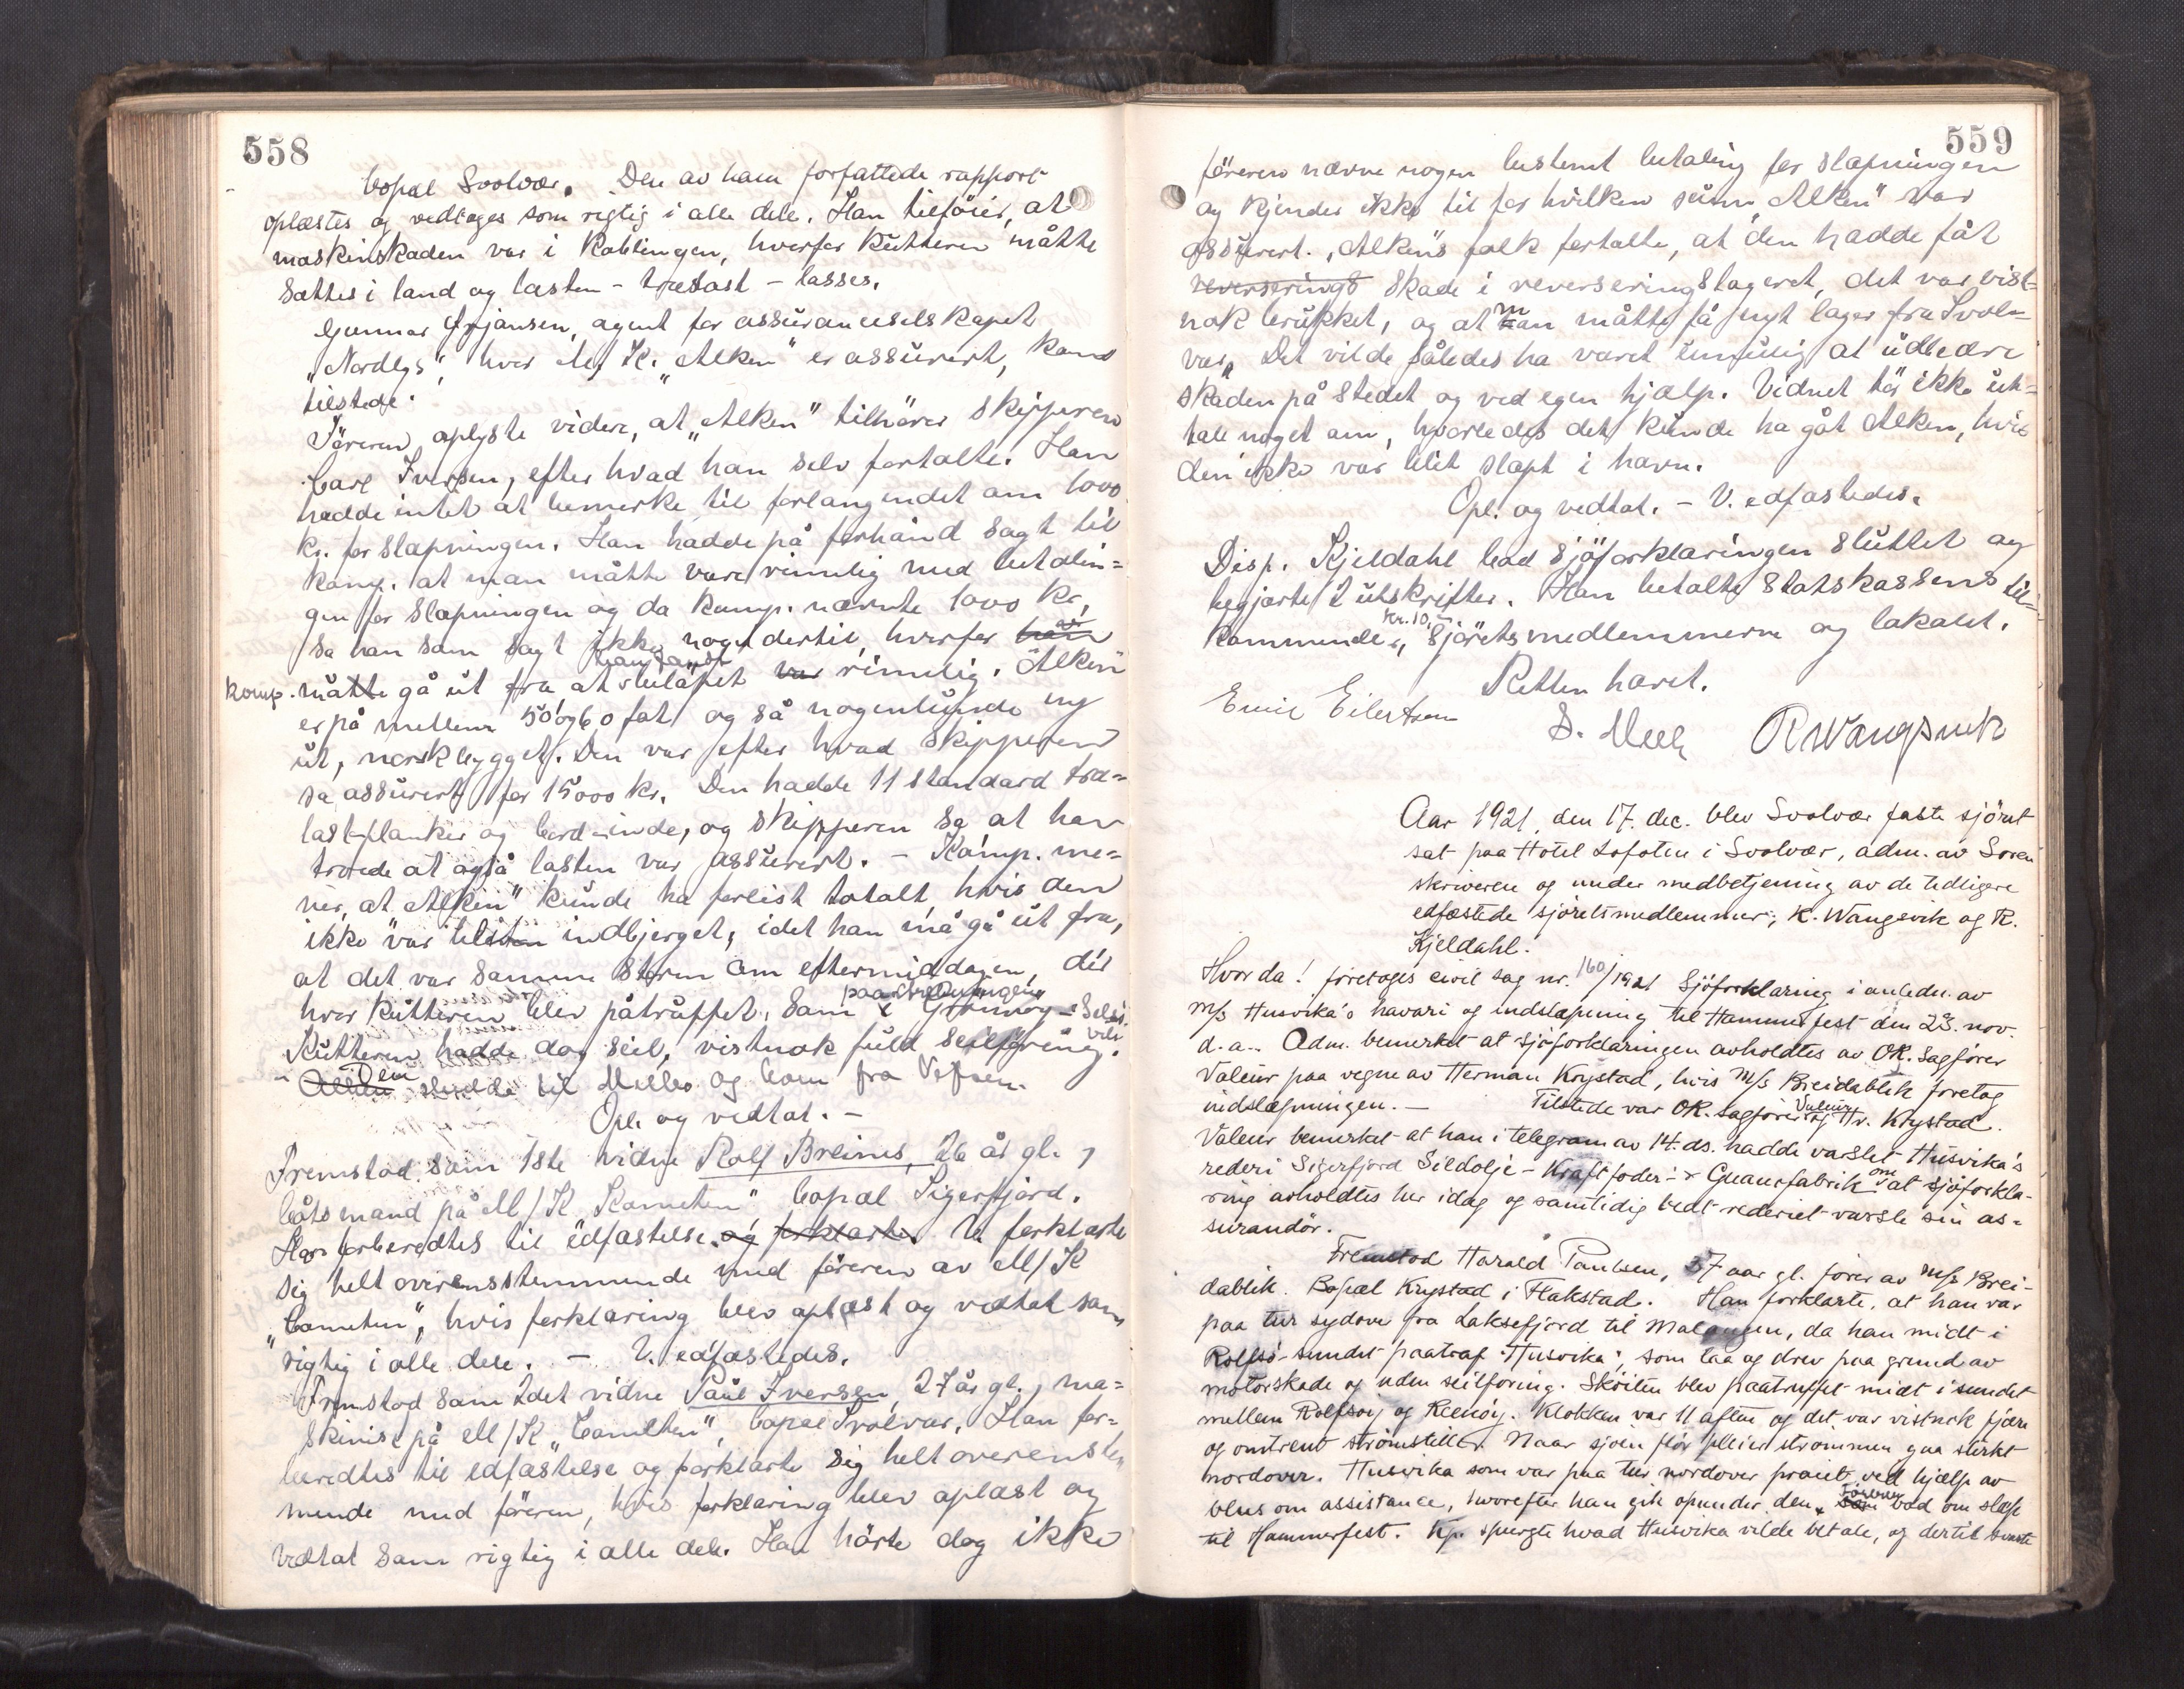 558
bopæl Svolvær. Den av ham forfattede rapport
oplæstes og vedtoges som rigtig i alle dele. Han tilföier, at
maskinskaden var i Koblingen, hvorfor kutteren måtte
sættes i land og lasten - trælast - losses.
Gunnar Ørjansen, agent for assuranceselskapet
"Nordlys", hvor M/K. "Alken" er assurert, kom
tilstede.
Föreren oplyste videre, at "Alken" tilhörer skipperen
Carl Iversen, efter hvad han selv fortalte. Han
hadde intet at bemerke til forlangendet om 1000
kr. for slæpningen. Han hadde på forhånd sagt til
komp. at man måtte være rimelig med betalin=
gen for slæpningen og da komp. nævnte 1000 kr,
sa han som sagt ikke noget dertil, hvorfor han
komp. måtte gå ut fra at han fandt beløpet var rimelig. "Alken"
er på mellem 50 og 60 fot og så nogenlunde ny
ut, norskbygget. Den var efter hvad skipperen
sa assurert for 15000 kr. Den hadde 11 standard træ=
last-planker og bord-inde, og skipperen sa at han
trodde at også lasten var assurert. - Komp. me=
ner, at "Alken" kunde ha forlist totalt, hvis den
ikke var blit indbjerget, idet han må gå ut fra,
at det var samme storm om eftermiddagen, der
hvor kutteren blev påtruffet, som paa strekningen Grönnöy - Selsövik.
Kutteren hadde dog seil, vistnok fuld seilföring.
Alken Den skulde til Melbo og kom fra Vefsen.
Opl. og vedtat. -
Fremstod som 1ste vidne Rolf Breines, 26 år gl.,
båtsmand på M/K "Kometen" bopæl Sigerfjord.
Han forberedtes til edfæstelse og forklarte. V. forklarte
sig helt overensstemmende med föreren av M/K
"Cometen", hvis forklaring blev oplæst og vedtat som
rigtig i alle dele. - V. edfæstedes.
Fremstod som 2det vidne Paul Iversen, 27 år gl., ma=
skinist på M/K "Comethen", bopæl Svolvær. Han for=
beredtes til edfæstelse og forklarte sig helt overenstem
mende med föreren, hvis forklaring blev oplæst og
vedtat som rigtig i alle dele. Han hörte dog ikke
559
föreren nævne nogen bestemt betaling for slæpningen
og kjender ikke til for hvilken sum "Alken" var
assurert. "Alken"s folk fortalte, at den hadde fåt
reverserings skade i reverseringslageret, det var vist=
nok brukket, og at man måtte få nyt lager fra Svol=
vær. Det vilde således ha været umulig at utbedre
skaden på stedet og ved egen hjælp. Vidnet tör ikke ut=
tale noget om, hvorledes det kunde ha gåt Alken, hvis
den ikke var blit slæpt i havn.
Opl. og vedtat. - V. edfæstedes.
Disp. Kjeldahl bad sjöforklaringen sluttet og
begjærte 2 utskrifter. Han betalte statskassens til=
kommende, kr. 10,- sjörettsmedlemmerne og lokalet.
Retten hævet.
Emil Eilertsen
D. Meck R Wangsvik
Aar 1921, den 17. dec. blev Svolvær faste sjöret
sat paa Hotel Lofoten i Svolvær, adm. av Soren
skriveren og under medbetjening av de tidligere
edfæstede sjöretsmedlemmer: K. Wangsvik og R.
Kjeldahl.
Hvor da! foretoges civil sag nr. 160/1921 Sjöforklaring i anledn. av
M/s Husvika's havari og indslæpning til Hammerfest den 23. nov.
d.a. - Adm. bemerket at sjöforklaringen avholdtes av OR. Sagförer
Valeur paa vegne av Herman Krystad, hvis M/s Breidablik foretog
indslæpningen. - Tilstede var OR. sagförer Valeur og Hr. Krystad.
Valeur bemerket at han i telegram av 14. ds. hadde varslet Husvika's
rederi Sigerfjord Sildolje - Kraftfoder- & Guanofabrik om at sjöforkla-
ring avholdtes her idag og samtidig bedt rederiet varsle sin as-
surandör.
Fremstod Harald Paulsen, 37 aar gl. förer av M/s Brei-
dablik. Bopæl Krystad i Flakstad. Han forklarte, at han var
paa tur sydover fra Laksefjord til Malangen, da han midt i
Rolfsö-sundet paatraf "Husvika", som laa og drev paa grund av
motorskade og uden seilföring. Sköiten blev paatruffet midt i sundet
mellem Rolfsöy og Reenöy. Klokken var 11 aften og det var vistnok fjære
og omtrent strömstille. Naar sjöen flör pleier strömmen gaa sterkt
nordover. Husvika som var paa tur nordover praiet ved hjælp av
blus om assistance, hvorefter han gik opunder den. Som Föreren bad om slæp
til Hammerfest. Kp. spurgte hvad Husvika vilde betale, og dertil svarte